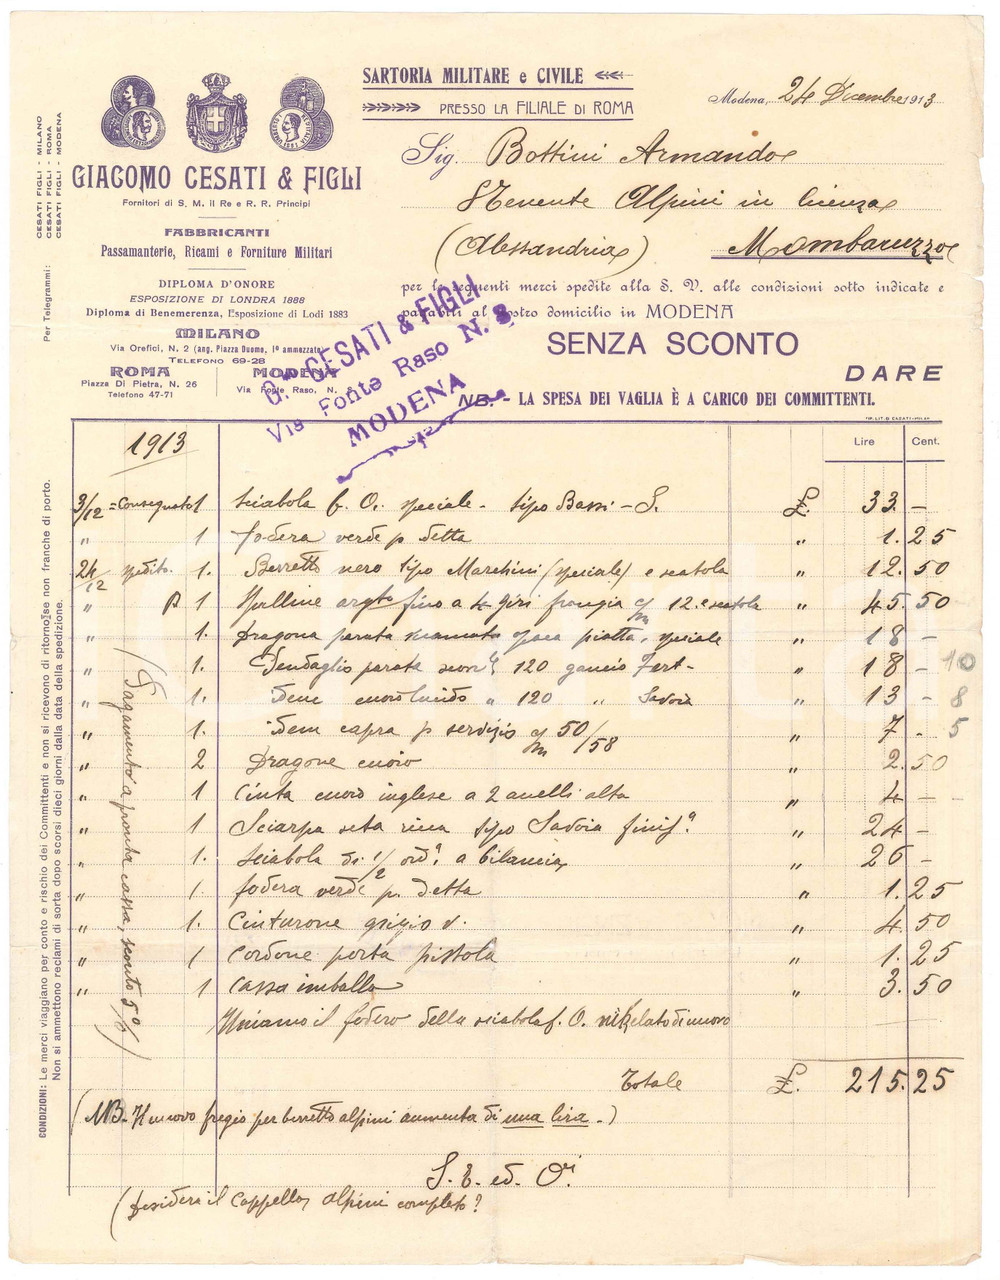 SARTORIA MILITARE e CIVILE
PRESSO LA FILIALE DI ROMA
Modena, 24 Dicembre 1913
GIACOMO CESATI & FIGLI
Fornitori di S. M. il Re e R. R. Principi
FABBRICANTI
Passamanterie, Ricami e Forniture Militari
DIPLOMA D'ONORE
ESPOSIZIONE DI LONDRA 1888
Diploma di Benemerenza, Esposizione di Lodi 1883
MILANO
Via Orefici, N. 2 (ang. Piazza Duomo, 1º ammezzato)
TELEFONO 69-28
ROMA
Piazza Di Pietra, N. 26
Telefono 47-71
MODENA
Via Fonte Raso, N.
Per Telegrammi:
CESATI FIGLI - MILANO
CESATI FIGLI - ROMA
CESATI FIGLI - MODENA
Sig. Bottini Armando
STenente Alpini in licenza
(Alessandria) Mombaruzzo
per le seguenti merci spedite alla S. V. alle condizioni sotto indicate e
pagabili al nostro domicilio in MODENA
SENZA SCONTO
DARE
NB. - LA SPESA DEI VAGLIA È A CARICO DEI COMMITTENTI.
TIP. LIT. G. CESATI - MILANO
G. CESATI & FIGLI
Via Fonte Raso N. 8
MODENA
Lire Cent.
1913
3/12 = Consegnato 1 sciabola f. O. speciale - tipo Bassi - S. £. 33. -
" 1 fodera verde p. detta " 1. 25
24/12 spedito. 1. Berretto nero tipo Marchini (speciale) e scatola " 12. 50
" P 1 Spalline argto fino a 4 giri frangia c/m 12. e scatola " 45. 50
" 1. Dragona parata piatta, speciale " 18 -
" 1. Pendaglio parata 120 gancio Fert- " 18 - 10
" 1. Idem cuoio lucido " 120 " Savoia " 13 - 8
" 1. idem capra p servizio c/m 50/58 " 7 - 5
" 2 Dragone cuoio " 2. 50
" 1 Cinta cuoio inglese a 2 anelli alta " 4 -
" 1 Sciarpa seta tipo Savoia finissª " 24 -
" 1. Sciabola di 1/2 ordª a bilancia " 26 -
" 1. fodera verde p. detta " 1. 25
" 1. Cinturone grigio v. " 4. 50
" 1 Cordone porta pistola " 1. 25
" 1 Cassa imballo " 3. 50
Uniamo il fodero della sciabola f. O. nikelato di nuovo
Totale £. 215. 25
(Pagamento a pronta cassa, sconto 5 0/0)
(NB- Il nuovo fregio per berretto alpini aumenta di una lira -)
S. E. ed O.
(desidera il cappello alpini completo?
CONDIZIONI: Le merci viaggiano per conto e rischio dei Committenti e non si ricevono di ritorno se non franche di porto.
Non si ammettono reclami di sorta dopo scorsi dieci giorni dalla data della spedizione.